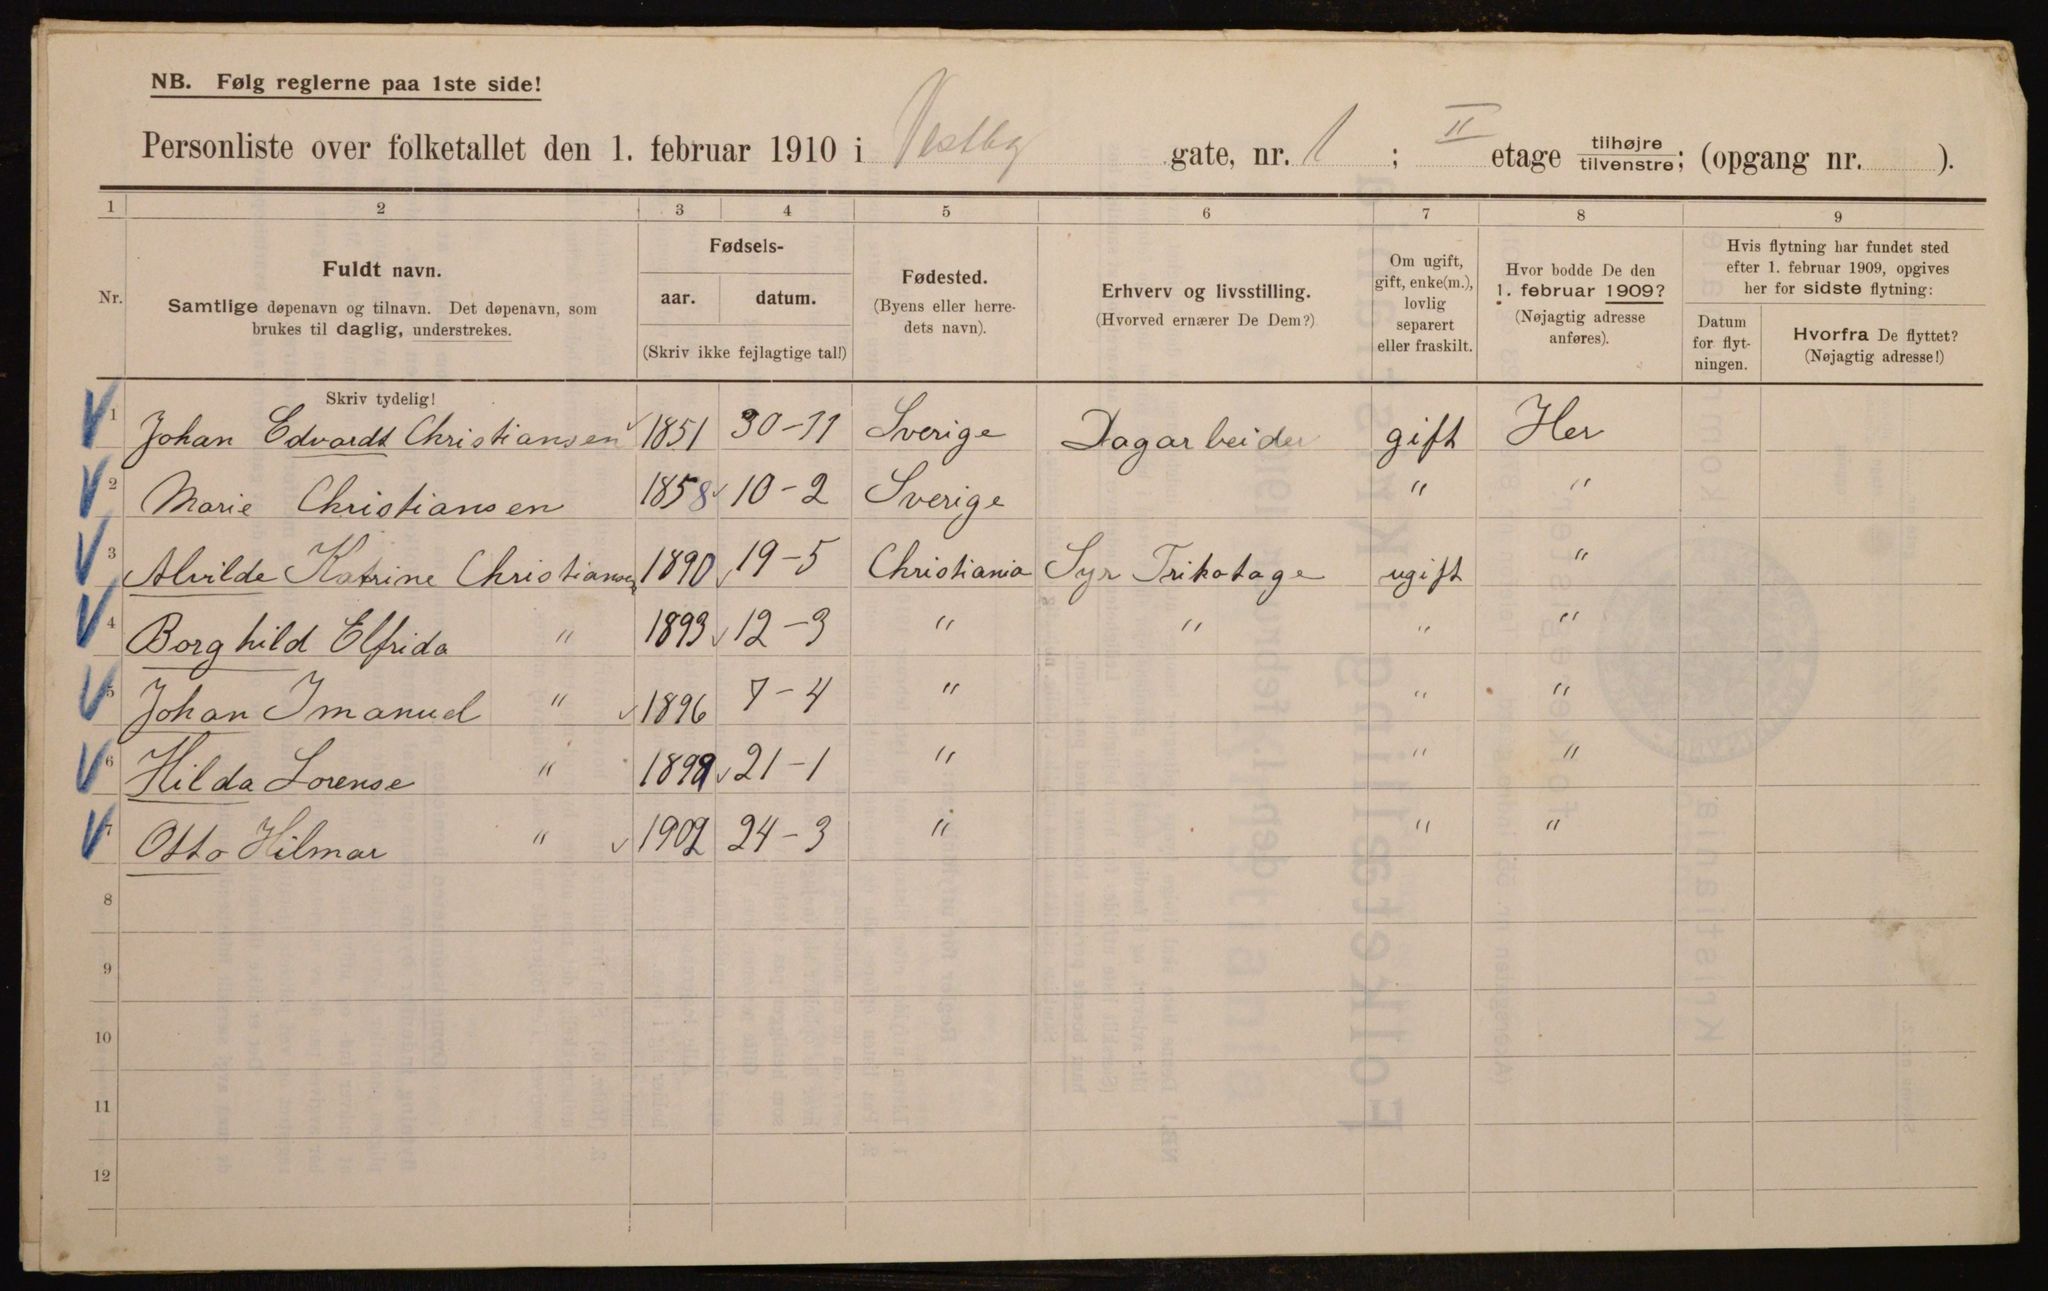 NB. Følg reglerne paa 1ste side!
Personliste over folketallet den 1. februar 1910 i Vestby gate, nr. 1 ; II etage tilhøjre/tilvenstre; (opgang nr. ).
1 2 3 4 5 6 7 8 9
Nr.
Fuldt navn.
Samtlige døpenavn og tilnavn. Det døpenavn, som
brukes til daglig, understrekes.
Fødsels-
aar. datum.
(Skriv ikke fejlagtige tal!)
Fødested.
(Byens eller herre-
dets navn).
Erhverv og livsstilling.
(Hvorved ernærer De Dem?)
Om ugift,
gift, enke(m.),
lovlig
separert
eller fraskilt.
Hvor bodde De den
1. februar 1909?
(Nøjagtig adresse
anføres).
Hvis flytning har fundet sted
efter 1. februar 1909, opgives
her for sidste flytning:
Datum
for flyt-
ningen.
Hvorfra De flyttet?
(Nøjagtig adresse!)
Skriv tydelig!
1 Johan Edvardt Christiansen 1851 30-11 Sverige Dagarbeider gift Her
2 Marie Christiansen 1858 10-2 Sverige " "
3 Alvilde Katrine Christiansen 1890 19-5 Christiania Syr Trikotage ugift "
4 Borghild Elfrida " 1893 12-3 " " " "
5 Johan Imanuel " 1896 7-4 " " "
6 Hilda Lorense " 1899 21-1 " " "
7 Otto Hilmar " 1902 24-3 " " "
8
9
10
11
12